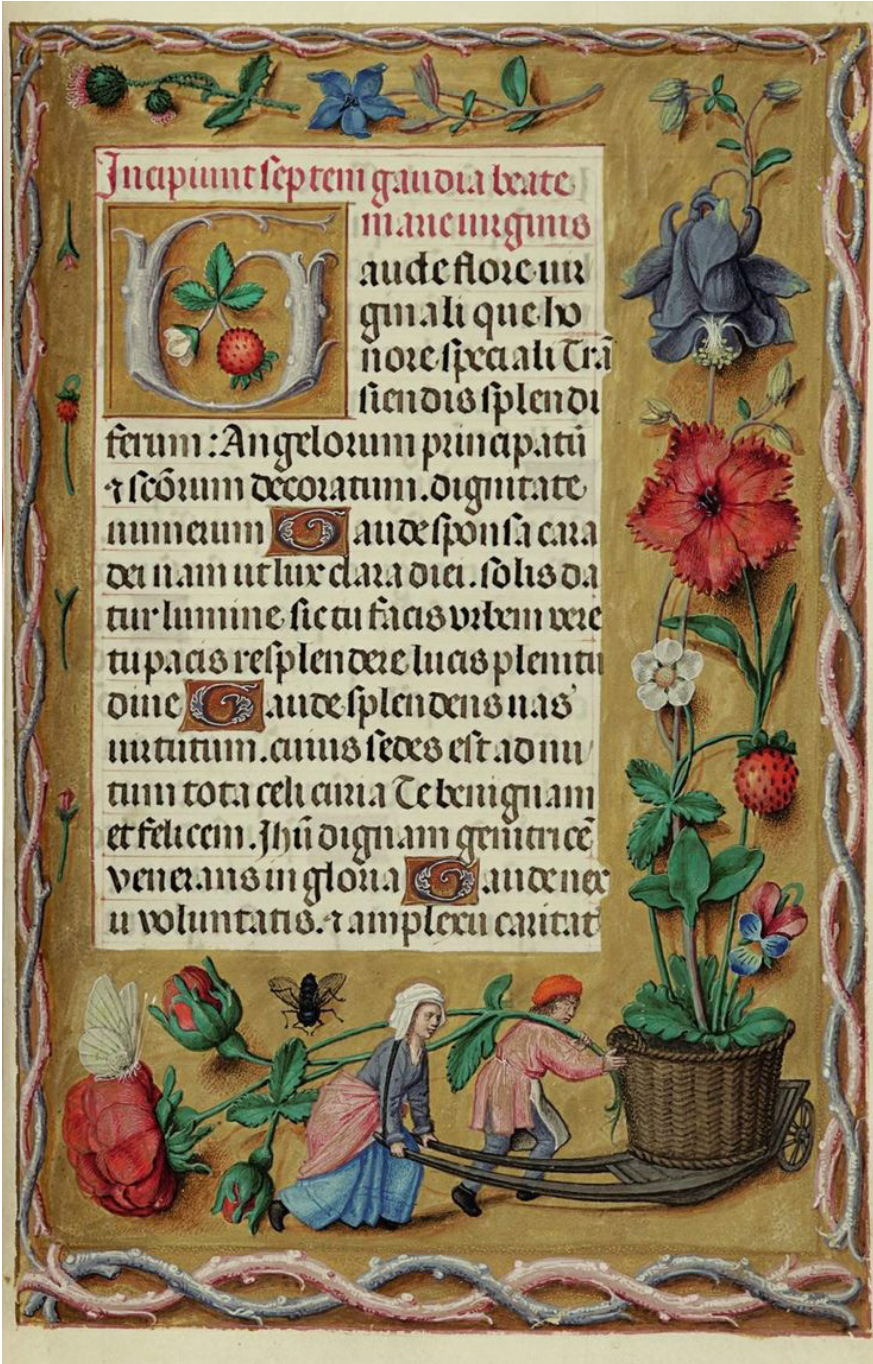 Incipiunt septem gaudia beate
marie uirginis
Gaude flore uir
ginali que ho
nore speciali Trā
siendis splendi
ferum : Angelorum principatū
⁊ scōrum decoratum. dignitate
numerum Gaude sponsa cara
dei nam ut lux clara diei. solis da
tur lumine sic tu facis orbem vere
tu pacis resplendere lucis plenitu
dine Gaude splendens uas
uirtutum. cuius sedes est ad nu
tum tota celi curia Te benignam
et felicem. Jhū dignam genitricē
venerans in gloria Gaude nex
u voluntatis. ⁊ amplexu caritat